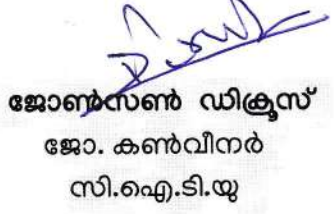 ജോൺസൺ ഡിക്രൂസ്
ജോ. കൺവീനർ
സി.ഐ.ടി.യു